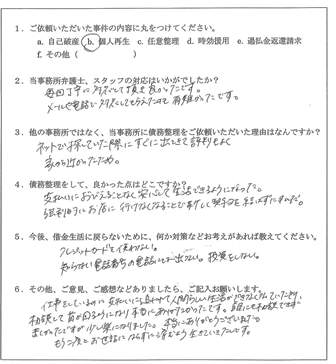 1．ご依頼いただいた事件の内容に丸をつけてください。
a. 自己破産 b. 個人再生 c. 任意整理 d. 時効援用 e. 過払金返還請求
f. その他（ ）
2．当事務所弁護士、スタッフの対応はいかがでしたか？
毎回丁寧に対応して頂き良かったです。
メールや電話で対応してもらえたので有難かったです。
3．他の事務所ではなく、当事務所に債務整理をご依頼いただいた理由はなんですか？
ネットで探していた際にすぐに出てきて評判もよく
家から近かったため。
4．債務整理をして、良かった点はどこですか？
支払いにおびえることなく安心して生活できるようになった。
強制的にお店に行けなくなることで新しく現金を
5．今後、借金生活に戻らないために、何か対策などお考えがあれば教えてください。
クレジットカードを使わない。
知らない電話番号の電話にでない。投資をしない。
6．その他、ご意見、ご感想などありましたら、ご記入お願いします。
仕事をしているのに支払いに追われて人間らしい生活ができなくなっていたため、
相談して首が回るようになり本当にありがたかったです。
ましたが少し楽になりました。本当にありがとうございました。
もう二度とお世話にならずに済むよう生きていきたいです。